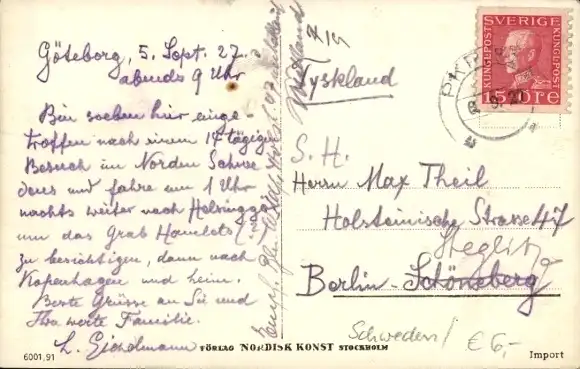 Göteborg, 5. Sept. 27.
abends 9 Uhr
Bin soeben hier einge-
troffen nach einem 14 tägigen
Besuch im Norden Schwe-
dens und fahre um 1 Uhr
nachts weiter nach Helsingör
um das Grab Hamlets (!)
zu besichtigen, dann nach
Kopenhagen und heim.
Beste Grüsse an Sie und
Ihre werte Familie.
L.
6001,91
FÖRLAG NORDISK KONST STOCKHOLM
SVERIGE
KUNGL·POST
KUNGL·POST
15 ÖRE
Tyskland
S. H.
Herrn Max Theil
Holsteinische Strasse 47
Steglitz
Berlin-Schöneberg
Schweden
€ 6,-
Import